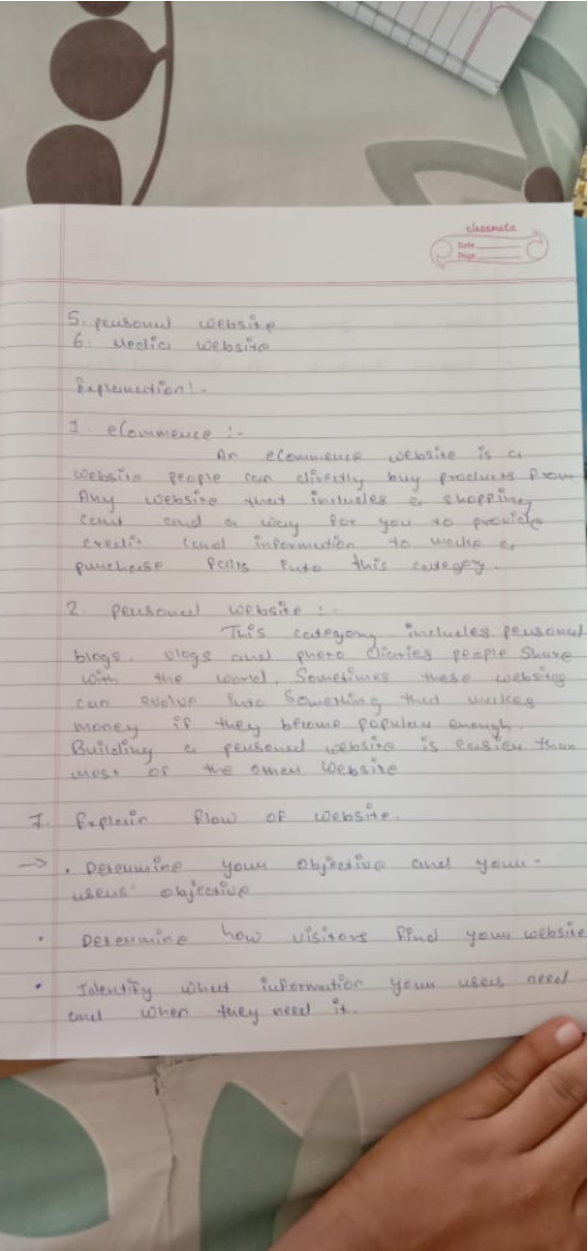 classmate
Date
Page
5. personal website
6. Media website
Explanation:-
1. eCommerce :-
An eCommerce website is a
website people can directly buy products from
Any website that includes a shopping
cart and a way for you to provide
credit card information to make a
purchase falls into this category.
2. personal website :-
This category includes personal
blogs, vlogs and photo diaries people share
with the world. Sometimes these website
can evolve into something that makes
money if they become popular enough.
Building a personal website is easier than
most of the other website
7. Explain flow of website.
→ • Determine your objective and your-
users' objective
• Determine how visitors find your website
• Identify what information your users need
and when they need it.